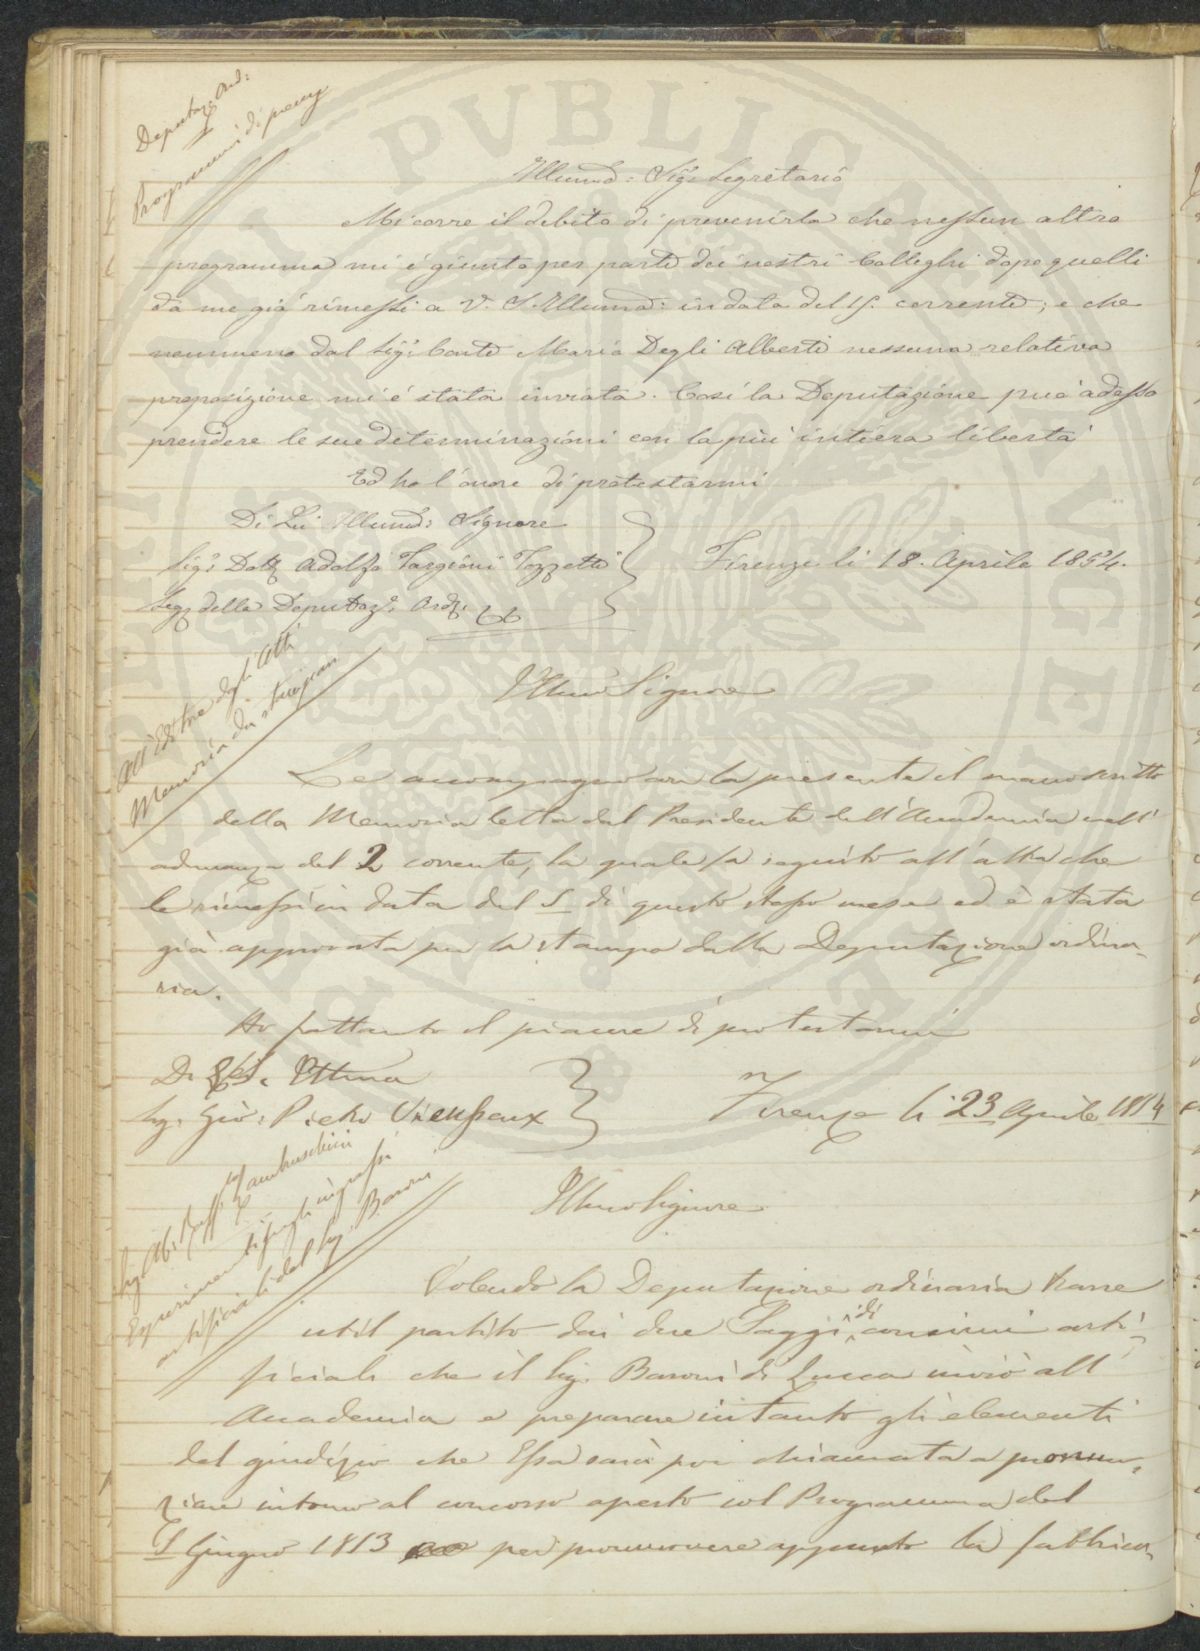 Deputaz.e Ord:
Programmi di premj
Illumo: Sig: Segretario
Mi corre il debito di prevenirla che nessun altro
programma mi è giunto per parte dei nostri Colleghi dopo quelli
da me già rimessi a V. S. Illuma: in data del 15. corrente; e che
nemmeno dal Sig: Conte Mario Degli Alberti nessuna relativa
proposizione mi è stata inviata. Così la Deputazione può adesso
prendere le sue determinazioni con la più intiera libertà
Ed ho l'onore di protestarmi
Di Lei Illumo: Signore
Sig: Dott Adolfo Targioni Tozzetti
Firenze li 18. Aprile 1854.
Seg della Deputaz: Ord:
All'Editore degli Atti
Memoria da stamparsi
Illmo Signore
Le accompagno con la presente il manoscritto
della Memoria letta dal Presidente dell'Accademia nell'
adunanza del 2 corrente, la quale fa seguito all'altra che
le rimessi in data del 5 di questo stesso mese ed è stata
già approvata per la stampa dalla Deputazione ordina-
ria.
Ho frattanto il piacere di protestarmi
Di V.S. Illma
Sig. Gio: Pietro Vieusseux
Firenze li 23 Aprile 1854
Sig. Ab. Raff. Lambruschini
Esperimenti sugli ingrassi
artificiali del Sig. Baroni
Illmo Signore
Volendo la Deputazione ordinaria trarre
util partito dai due Saggi di concimi arti-
ficiali che il Sig. Baroni di Lucca inviò all'
Accademia e preparare intanto gli elementi
del giudizio che Essa sarà poi chiamata a pronun-
ziare intorno al concorso aperto col Programma del
5 Giugno 1853 per promuovere appunto la fabbrica-